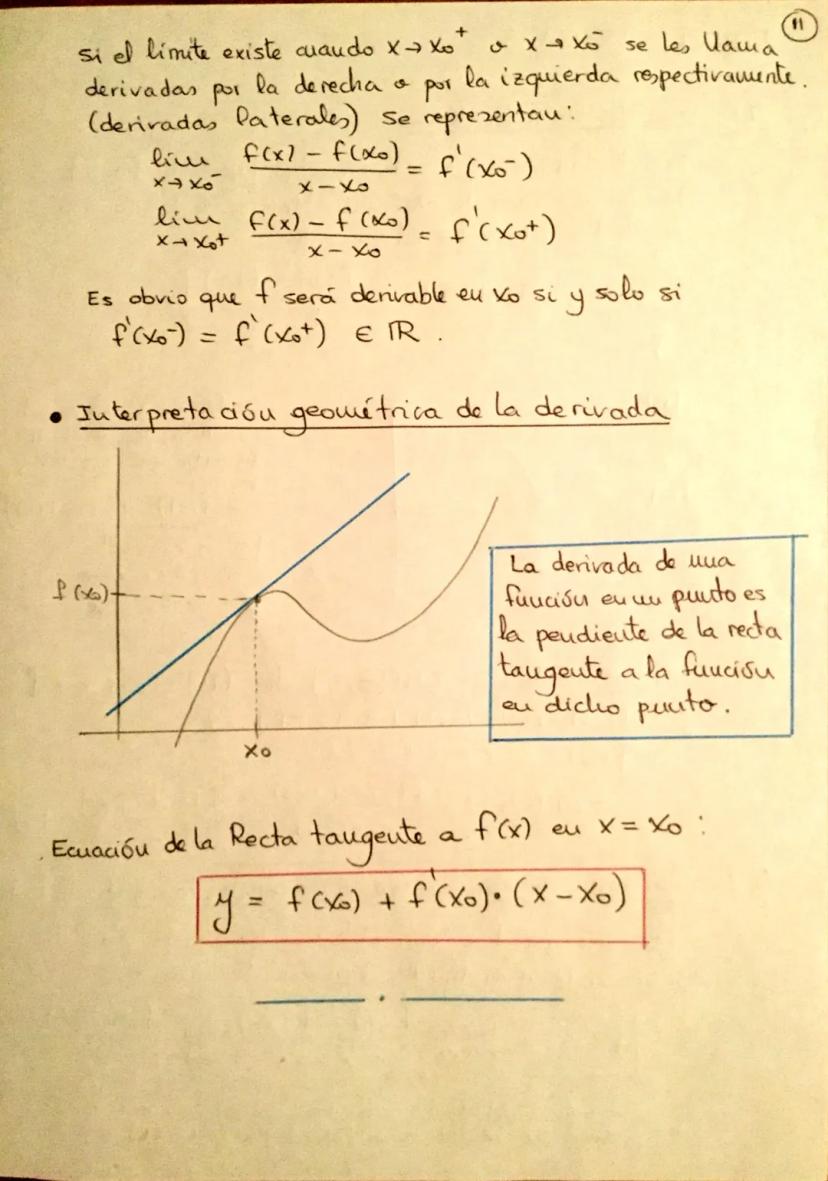 11
si el límite existe cuando x→x₀⁺ o x→x₀⁻ se les llama
derivadas por la derecha o por la izquierda respectivamente.
(derivadas laterales) Se representan:
lim x→x₀⁻ (f(x) - f(x₀))/(x - x₀) = f'(x₀⁻)
lim x→x₀⁺ (f(x) - f(x₀))/(x - x₀) = f'(x₀⁺)
Es obvio que f será derivable en x₀ si y solo si
f'(x₀⁻) = f'(x₀⁺) ∈ ℝ.
• Interpretación geométrica de la derivada
f(x₀)
x₀
La derivada de una
función en un punto es
la pendiente de la recta
tangente a la función
en dicho punto.
Ecuación de la Recta tangente a f(x) en x = x₀:
y = f(x₀) + f'(x₀)·(x - x₀)